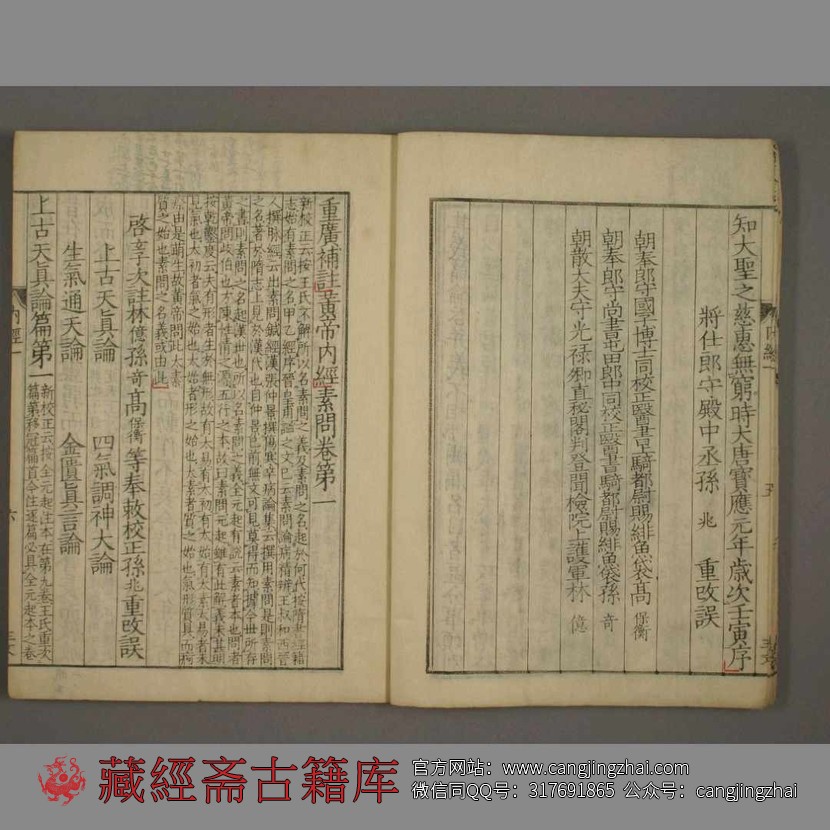 知大聖之慈惠無窮時大唐寶應元年歲次壬寅序
將仕郎守殿中丞孫 兆 重改誤
朝奉郎守國子博士同校正醫書上騎都尉賜緋魚袋高 保衡
朝奉郎守尚書屯田郎中同校正醫書騎都尉賜緋魚袋孫 奇
朝散大夫守光祿卿直秘閣判登聞檢院上護軍林 億
重廣補註黃帝內經素問卷第一
新校正云按王氏不解所以名素問之義及素問之名起於何代按隋書經籍
志始有素問之名甲乙經序晉皇甫謐之文已云素問論病精辨王叔和西晉
人撰脉經云出素問鍼經漢張仲景撰傷寒卒病論集云撰用素問是則素問
之名著於隋志上見於漢代也自仲景已前無文可見莫得而知據今世所存
之書則素問之名起漢世也所以名素問之義全元起有說云素者本也問者
黃帝問岐伯也方陳性情之源五行之本故曰素問元起雖有此解義未甚明
按乾鑿度云夫有形者生於無形故有太易有太初有太始有太素太易者未
見氣也太初者氣之始也太始者形之始也太素者質之始也氣形質具而痾
瘵由是萌生故黃帝問此太素
質之始也素問之名義或由此
啓玄子次註林億孫奇高保衡等奉敕校正孫兆重改誤
上古天真論 四氣調神大論
生氣通天論 金匱真言論
上古天真論篇第一
新校正云按全元起注本在第九卷王氏重次
篇第移冠篇首今注逐篇必具全元起本之卷
內經一
藏經斋古籍库
官方网站：www.cangjingzhai.com
微信同QQ号：317691865 公众号：cangjingzhai